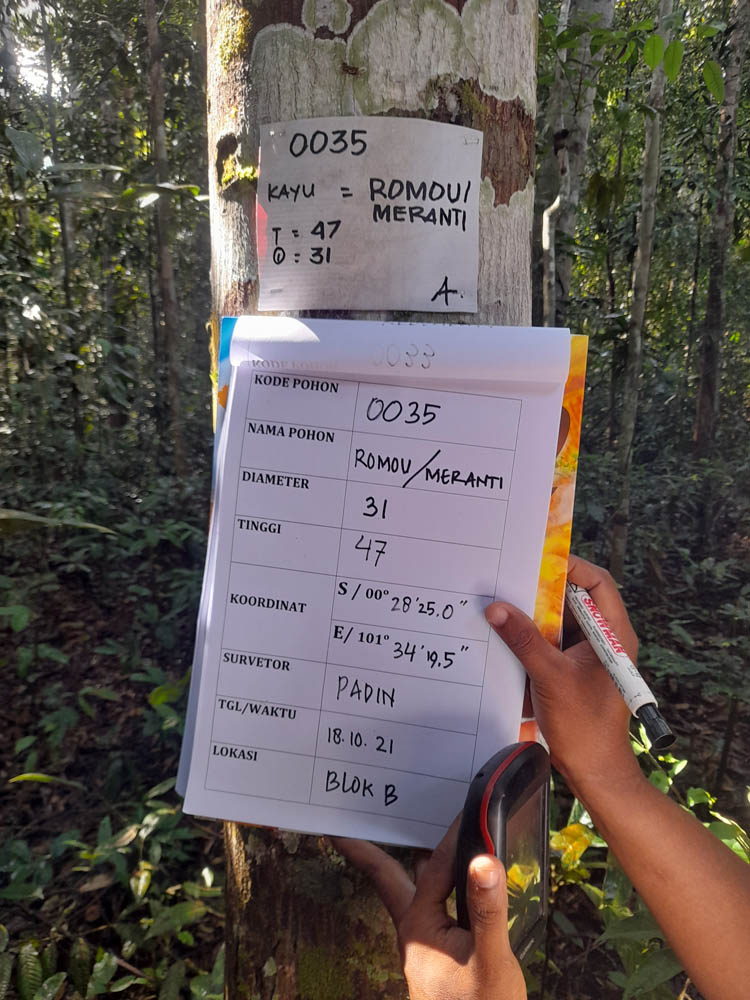 0035
KAYU = ROMOU/
MERANTI
T = 47
O : 31
A.
0033
KODE POHON 0035
NAMA POHON ROMOU/MERANTI
DIAMETER 31
TINGGI 47
KOORDINAT S / 00° 28'25.0"
E/ 101° 34'19.5"
SURVETOR PADIN
TGL/WAKTU 18.10.21
LOKASI BLOK B
SNOWMAN